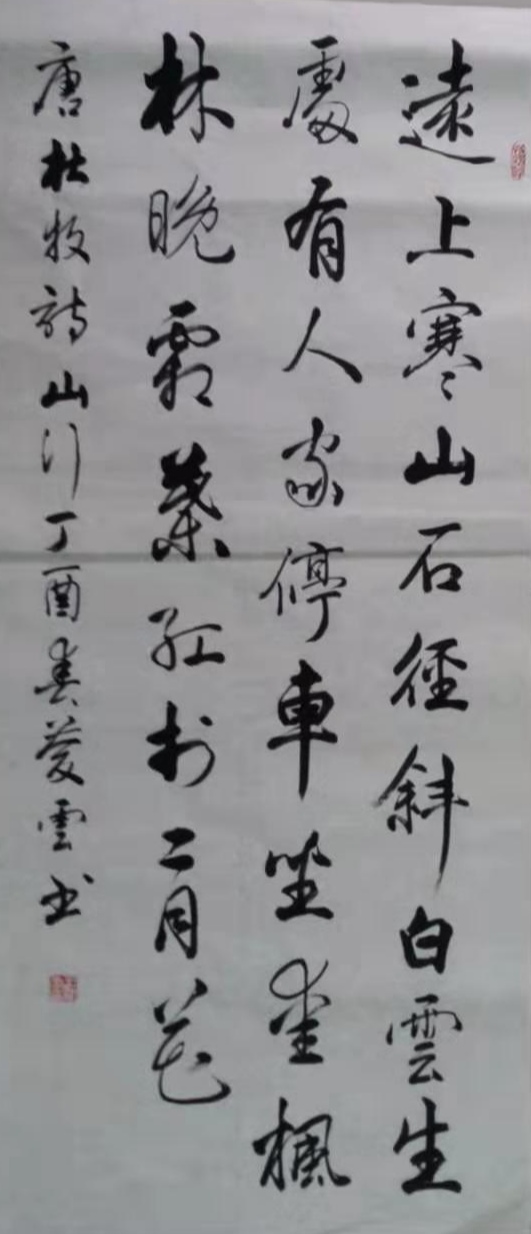 遠上寒山石徑斜白雲生
處有人家停車坐愛楓
林晚霜葉紅於二月花
唐杜牧詩山行丁酉春菱雲书